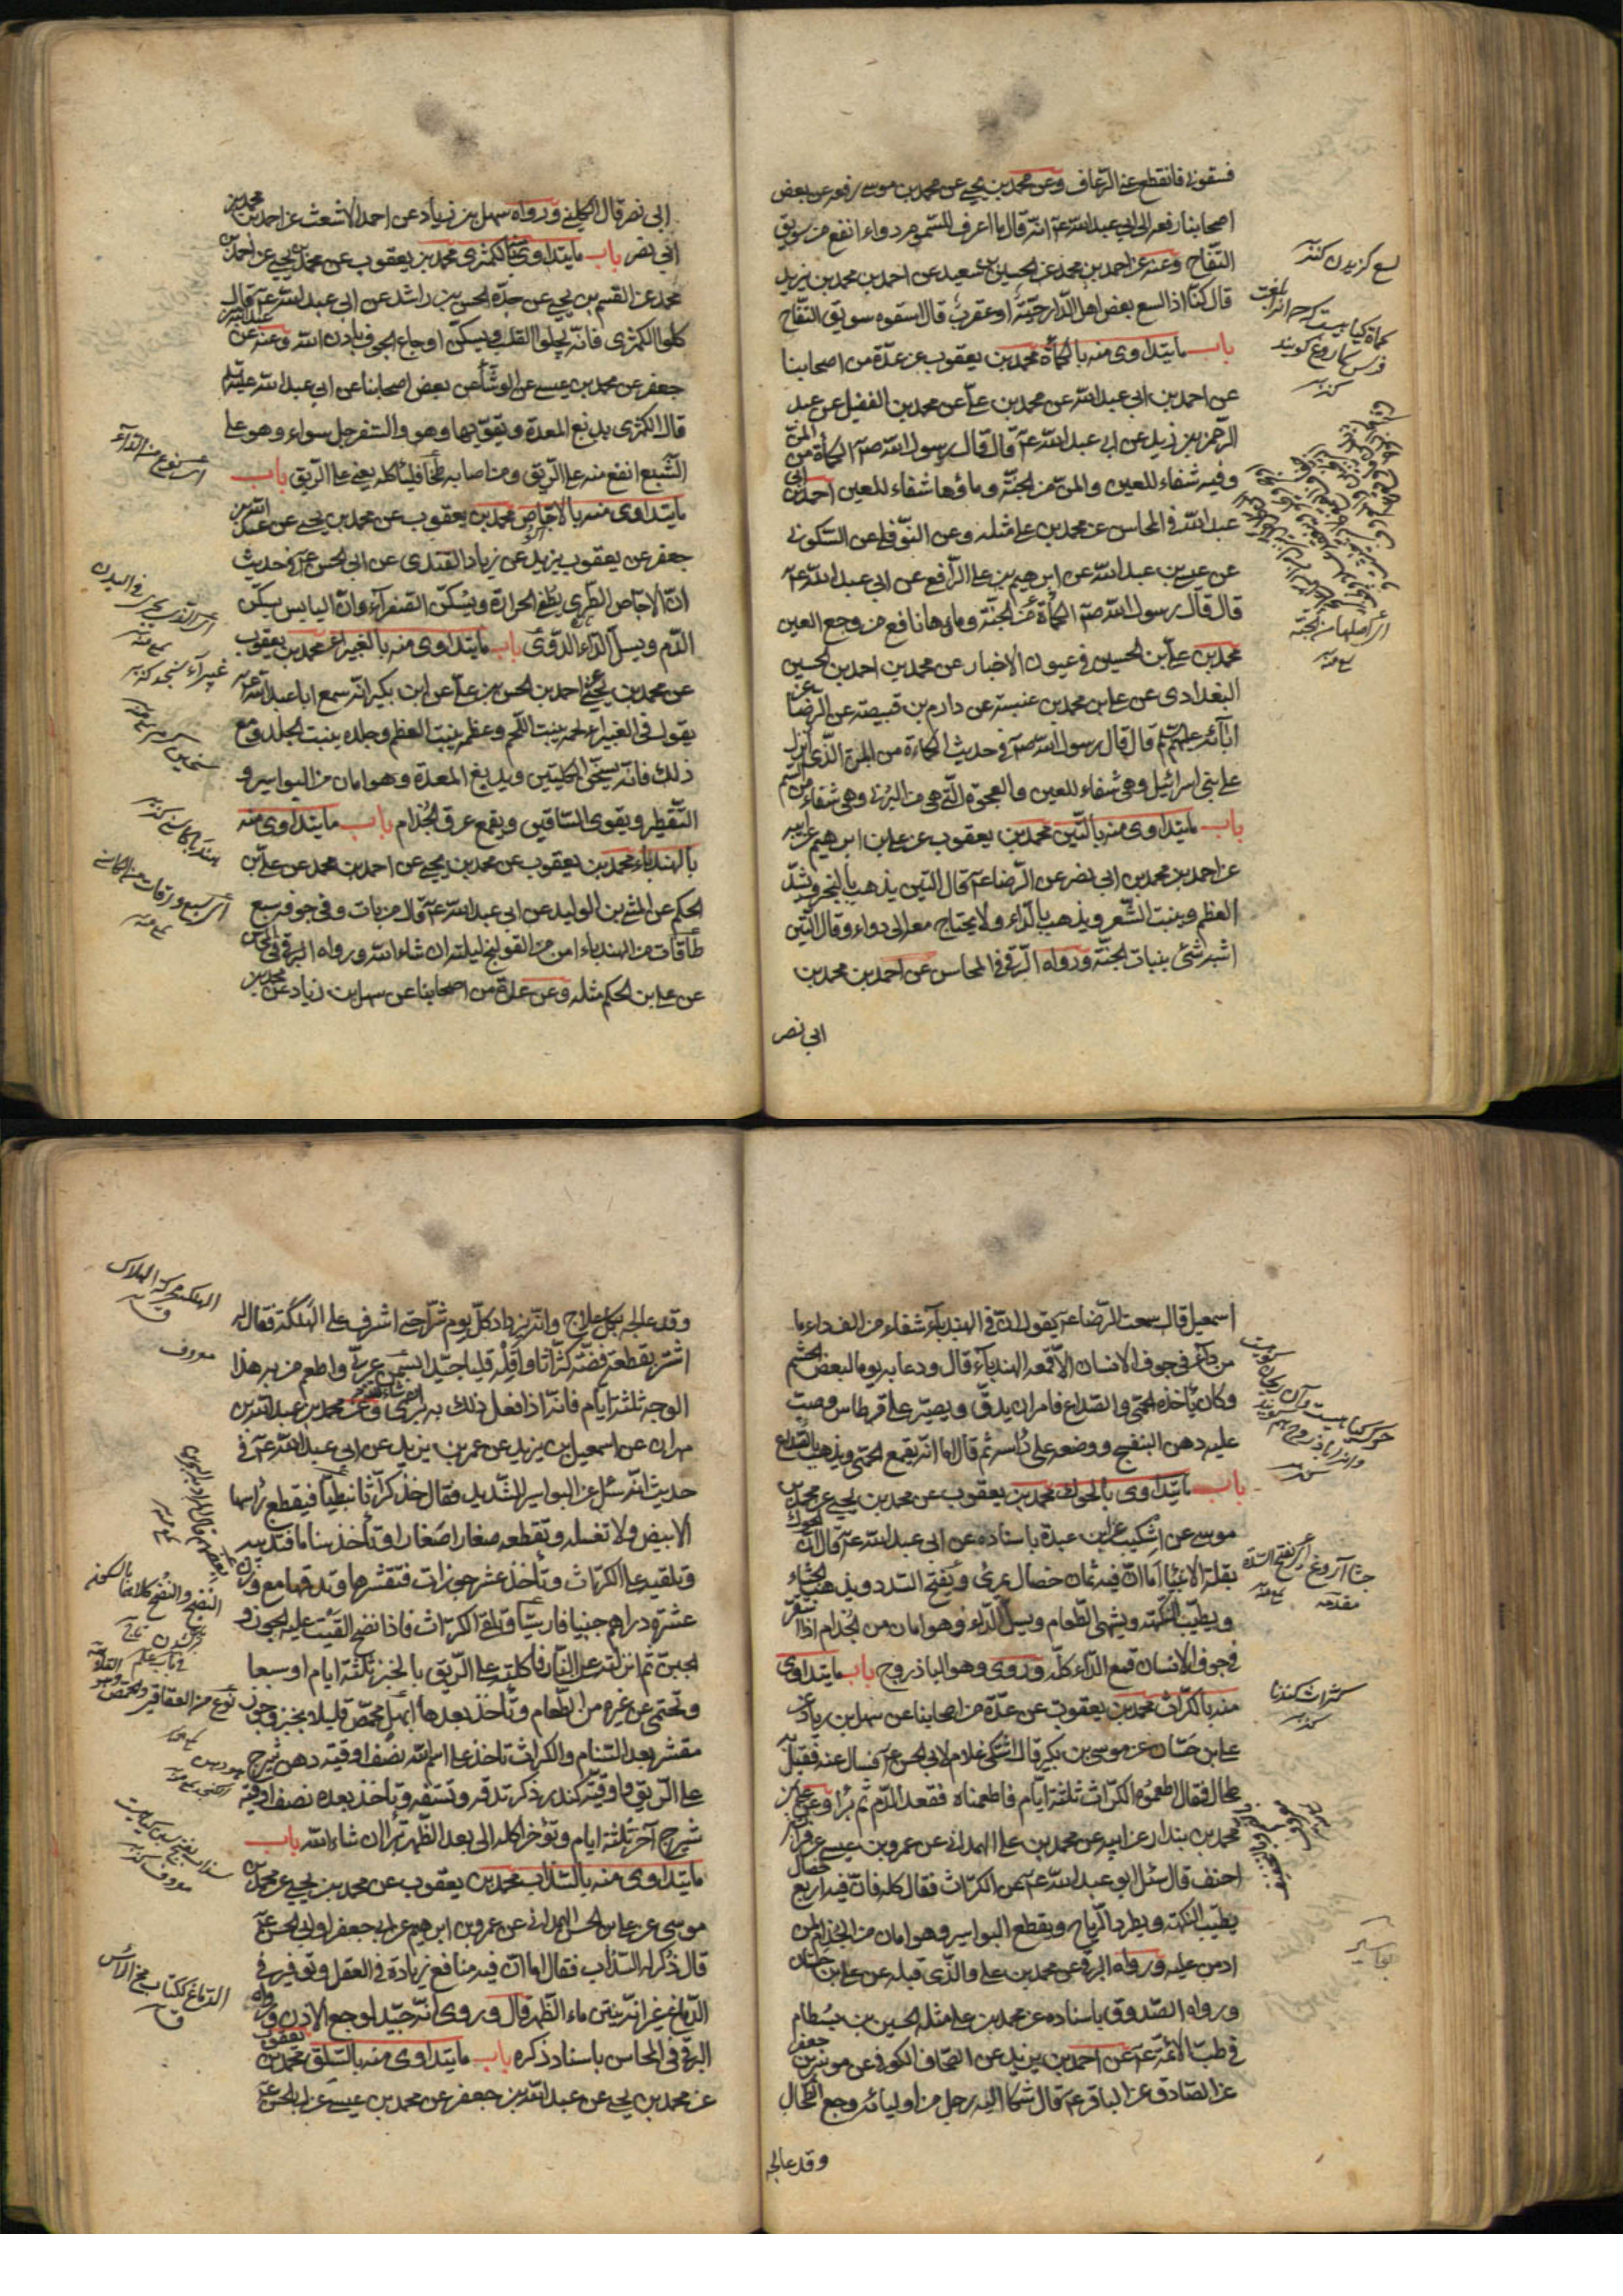 فسقوني فانقطع عني الرعاف وعن محمد بن يحيى عن محمد بن موسى رفعه عن بعض
اصحابنا رفعه الى ابي عبد الله عم انه قال ما اعرف للسموم دواء انفع من سويق
التفاح وعنه عن احمد بن محمد عن الحسين بن سعيد عن احمد بن محمد بن يزيد
قال كنا اذا لسع بعض اهل الدار حية او عقرب قال اسقوه سويق التفاح
باب ما يتداوى منه بالكمأة محمد بن يعقوب عن عدة من اصحابنا
عن احمد بن ابي عبد الله عن محمد بن علي عن محمد بن الفضيل عن عبد
الرحمن بن زيد عن ابي عبد الله عم قال قال رسول الله صم الكمأة من المن
وفيه شفاء للعين والمن من الجنة وماؤها شفاء للعين احمد بن ابي
عبد الله في المحاسن عن محمد بن علي مثله وعن النوفلي عن السكوني
عن عيسى بن عبد الله عن ابرهيم بن علي الرافعي عن ابي عبد الله عم
قال قال رسول الله صم الكمأة من الجنة وماءها نافع من وجع العين
محمد بن علي بن الحسين في عيون الاخبار عن محمد بن احمد بن الحسين
البغدادي عن علي بن محمد بن عنبسة عن دارم بن قبيصة عن الرضا عن
ابائه عليهم قال قال رسول الله صم في حديث الكماءة من المن الذي انزل
على بني اسرائيل وهي شفاء للعين والعجوة التي هي من البرني وهي شفاء من السم
باب ما يتداوى منه بالتين محمد بن يعقوب عن علي بن ابرهيم عن ابيه
عن احمد بن محمد بن ابي نصر عن الرضا عم قال التين يذهب بالبخر ويشد
العظم وينبت الشعر ويذهب بالداء ولا يحتاج معه الى دواء وقال التين
اشبه شئ بنبات الجنة ورواه البرقي في المحاسن عن احمد بن محمد بن
ابي نصر
لسع گزيدن كنز
كنز
اي اصلها من الجنة
ابي نصر قال الكليني ورواه سهل بن زياد عن احمد الاشعث عن احمد بن محمد بن
ابي نصر باب ما يتداوى منه بالكمثرى محمد بن يعقوب عن محمد بن يحيى عن احمد بن
محمد عن القسم بن يحيى عن جده الحسن بن راشد عن ابي عبد الله عم قال
كلوا الكمثرى فانه يجلوا القلب ويسكن اوجاع الجوف باذن الله وعنه عن عبد الله بن
جعفر عن محمد بن عيسى عن الوشاء عن بعض اصحابنا عن ابي عبد الله عليه السلم
قال الكمثرى يدبغ المعدة ويقويها وهو والسفرجل سواء وهو على
الشبع انفع منه على الريق ومن اصابه طخاء فلياكله يعني على الريق باب
ما يتداوى منه بالاجاص محمد بن يعقوب عن محمد بن يحيى عن عبد الله بن
جعفر عن يعقوب بن يزيد عن زياد القندي عن ابي الحسن عم في حديث
ان الاجاص الطري يطفئ الحرارة ويسكن الصفراء وان اليابس يسكن
الدم ويسل الداء الدوي باب ما يتداوى منه بالغبيراء محمد بن يعقوب
عن محمد بن يحيى عن احمد بن الحسن بن علي عن ابن بكير انه سمع ابا عبد الله عم
يقول في الغبيراء لحمه ينبت اللحم وعظمه ينبت العظم وجلده ينبت الجلد ومع
ذلك فانه يسخن الكليتين ويدبغ المعدة وهو امان من البواسير و
التقطير ويقوي الساقين ويقمع عرق الجذام باب ما يتداوى منه
بالهندباء محمد بن يعقوب عن محمد بن يحيى عن احمد بن محمد عن علي بن
الحكم عن المثنى بن الوليد عن ابي عبد الله عم قال من بات وفي جوفه سبع
طاقات من الهندباء امن من القولنج ليلته ان شاء الله ورواه البرقي في المحاسن
عن علي بن الحكم مثله وعن عدة من اصحابنا عن سهل بن زياد عن محمد بن
اي نوع من الداء
اسمعيل قال سمعت الرضا عم يقول الاكل في الهندباء شفاء من الف داء ما
من داء في جوف الانسان الا قمعه الهندباء قال ودعا به يوما لبعض الحشم
وكان ياخذه الحمى والصداع فامر ان يدق ويصير على قرطاس وصب
عليه دهن البنفسج ووضعه على راسه ثم قال اما انه يقمع الحمى ويذهب بالصداع
باب ما يتداوى بالحوك محمد بن يعقوب عن محمد بن يحيى عن محمد بن
موسى عن اشكيب بن عبدة باسناده عن ابي عبد الله عم قال الحوك
بقلة الانبياء اما ان فيه ثمان خصال يمرئ ويفتح السدد ويذهب الجشاء
ويطيب النكهة ويشهي الطعام ويسل الداء وهو امان من الجذام اذا استقر
في جوف الانسان قمع الداء كله وروى وهو الباذروج باب ما يتداوى
منه بالكراث محمد بن يعقوب عن عدة من اصحابنا عن سهل بن زياد عن
علي بن حسان عن موسى بن بكير قال اشتكى غلام لابي الحسن عم فسال عنه فقيل به
طحال فقال اطعموه الكراث ثلثة ايام فاطعمناه فقعد الدم ثم برأ وعن علي بن
محمد بن بندار عن ابيه عن محمد بن علي الهمداني عن عمرو بن عيسى عن فرات بن
احنف قال سئل ابو عبد الله عم عن الكراث فقال كله فان فيه اربع خصال
يطيب النكهة ويطرد الرياح ويقطع البواسير وهو امان من الجذام لمن
ادمن عليه ورواه البرقي عن محمد بن علي والذي قبله عن علي بن حسان
ورواه الصدوق باسناده عن محمد بن علي مثله الحسين بن بسطام
في طب الائمة عم عن احمد بن يزيد عن الصحاف الكوفي عن موسى بن جعفر
عن الصادق عن الباقر عم قال شكا اليه رجل من اوليائه وجع الطحال
وقد عالجه
كراث گندنا
كنز
بواسير
وقد عالجه بكل علاج وانه يزداد كل يوم شرا حتى اشرف على الهلكة فقال له
اشتر بقطعة فضة كراثا واقله قليا جيدا بسمن عربي واطعم من به هذا
الوجع ثلثة ايام فانه اذا فعل ذلك به برئ ان شاء الله وعن محمد بن عبد الله بن
مهران عن اسمعيل بن يزيد عن عمر بن يزيد عن ابي عبد الله عم في
حديث انه سئل عن البواسير الشديد فقال خذ كراثا نبطيا فيقطع راسها
الابيض ولا تغسله وتقطعه صغارا صغارا وتأخذ سناما فتذيبه
وتلقيه على الكراث وتأخذ عشر جوزات فتقشرها وتدقها مع وزن
عشرة دراهم جبنا فارسيا وتغلى الكراث فاذا نضج القيت عليه الجوز و
الجبن ثم انزلته عن النار فاكلته على الريق بالخبز ثلثة ايام او سبعا
وتحتمي عن غيره من الطعام وتأخذ بعدها ابهل محمص قليلا بخبز وجوز
مقشر بعد السنام والكراث تاخذ على اسم الله نصف اوقية دهن شيرج
على الريق واوقية كندر ذكر تدقه وتستفه وتأخذ بعده نصف اوقية
شيرج آخر ثلثة ايام وتؤخر اكله الى بعد الظهر تبرأ ان شاء الله باب
ما يتداوى منه بالسذاب محمد بن يعقوب عن محمد بن يحيى عن محمد بن
موسى عن علي بن الحسن الهمداني عن عمرو بن ابرهيم عن ابي جعفر او ابي الحسن عم
قال ذكر له السذاب فقال اما ان فيه منافع زيادة في العقل وتوفير في
الدماغ غير انه ينتن ماء الظهر قال وروى انه جيد لوجع الاذن ورواه
البرقي في المحاسن باسناد ذكره باب ما يتداوى منه بالسلق محمد بن يعقوب
عن محمد بن يحيى عن عبد الله بن جعفر عن محمد بن عيسى عن ابي الحسن عم
الهلكة محركة الهلاك
ق
معروف
الدماغ ككتاب مخ الراس
ق